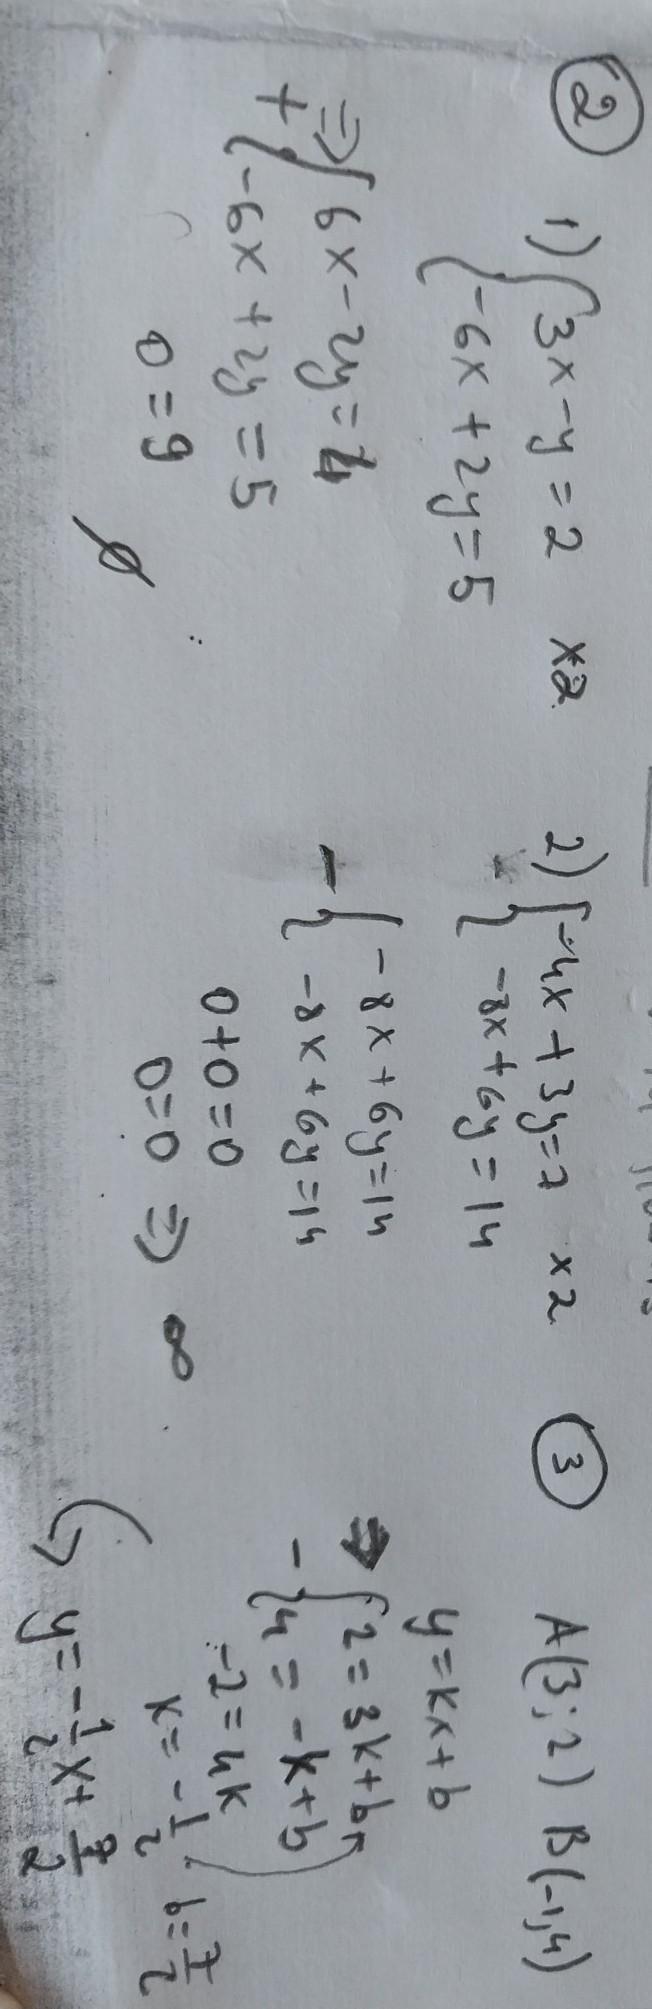 ② 1) { 3x - y = 2 x2
-6x + 2y = 5
=> { 6x - 2y = 4
+ -6x + 2y = 5
0 = 9
∅
2) { -4x + 3y = 7 x2
-8x + 6y = 14
- { -8x + 6y = 14
-8x + 6y = 14
0+0=0
0=0 => ∞
③ A(3;2) B(-1,4)
y = kx + b
=> { 2 = 3k + b
- 4 = -k + b
-2 = 4k
k = -1/2 . b = 7/2
y = -1/2 x + 7/2